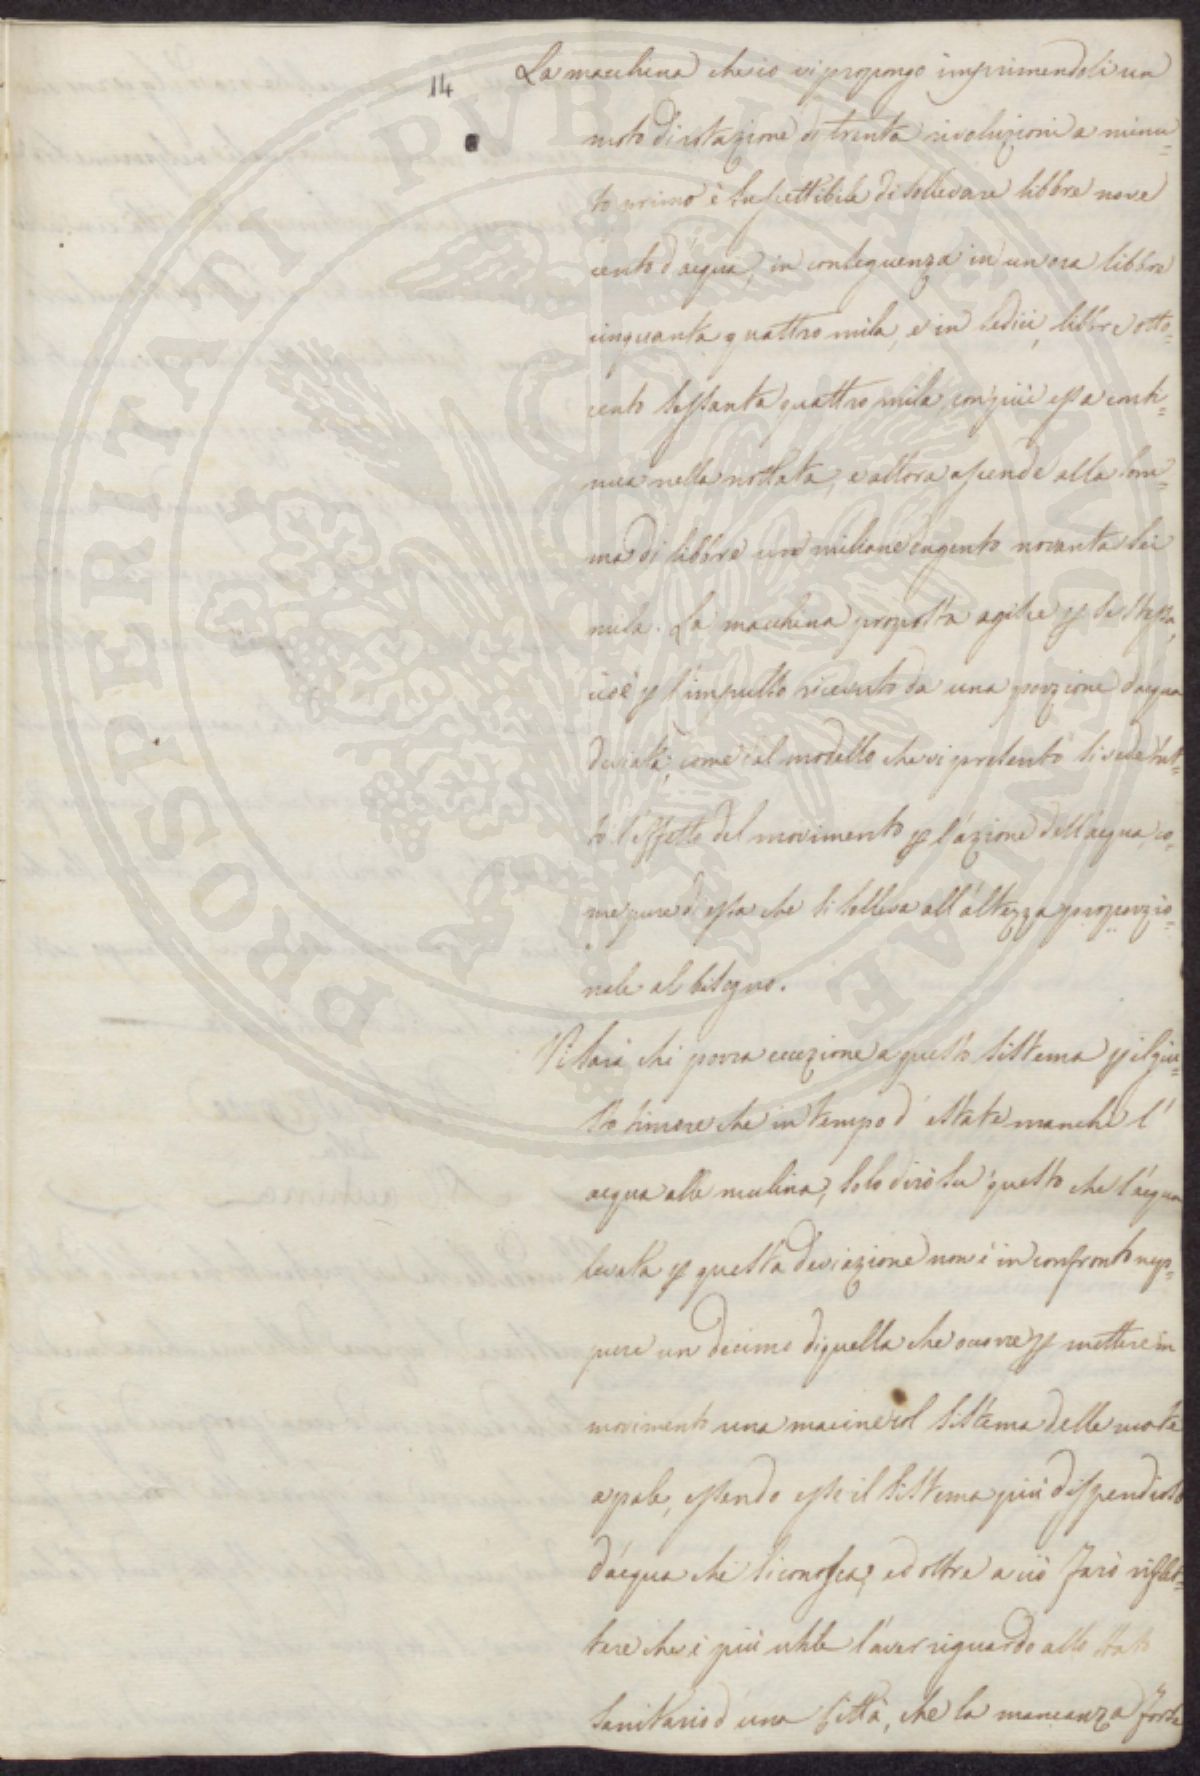 14
La macchina che io vi propongo imprimendoli un
moto di rotazione di trenta rivoluzioni a minu=
to primo è suscettibile di sollevare libbre nove
cento d'acqua, in conseguenza in un ora libbre
cinquanta quattro mila, e in sedici, libbre otto=
cento sessanta quattro mila, congiuè essa conti=
nua nella nottata, e allora ascende alla som=
ma di libbre un milione dugento novanta sei
mila. La macchina proposta agisce p se stessa,
cioè p l'impulso ricevuto da una porzione d'acqua
deviata, come dal modello che vi presento si vede tut=
to l'effetto del movimento p l'azione dell'acqua, co=
me pure di essa che si solleva all'altezza proporzio=
nale al bisogno.
Vi sarà chi porrà eccezione a questo sistema p il giu=
sto timore che in tempo d'estate manchi l'
acqua alle mulina, solo dirò su questo che l'acqua
levata p questa deviazione non è in confronto nep=
pure un decimo di quella che occorre p mettere in
movimento una macine col sistema delle ruote
a pale, essendo esse il sistema più dispendioso
d'acqua che si conosca; ed oltre a ciò farò riflet=
tere che è più utile l'aver riguardo allo stato
sanitario d'una Città, che la mancanza forse
PROSPERITATI PVBLICAE AVGENDAE